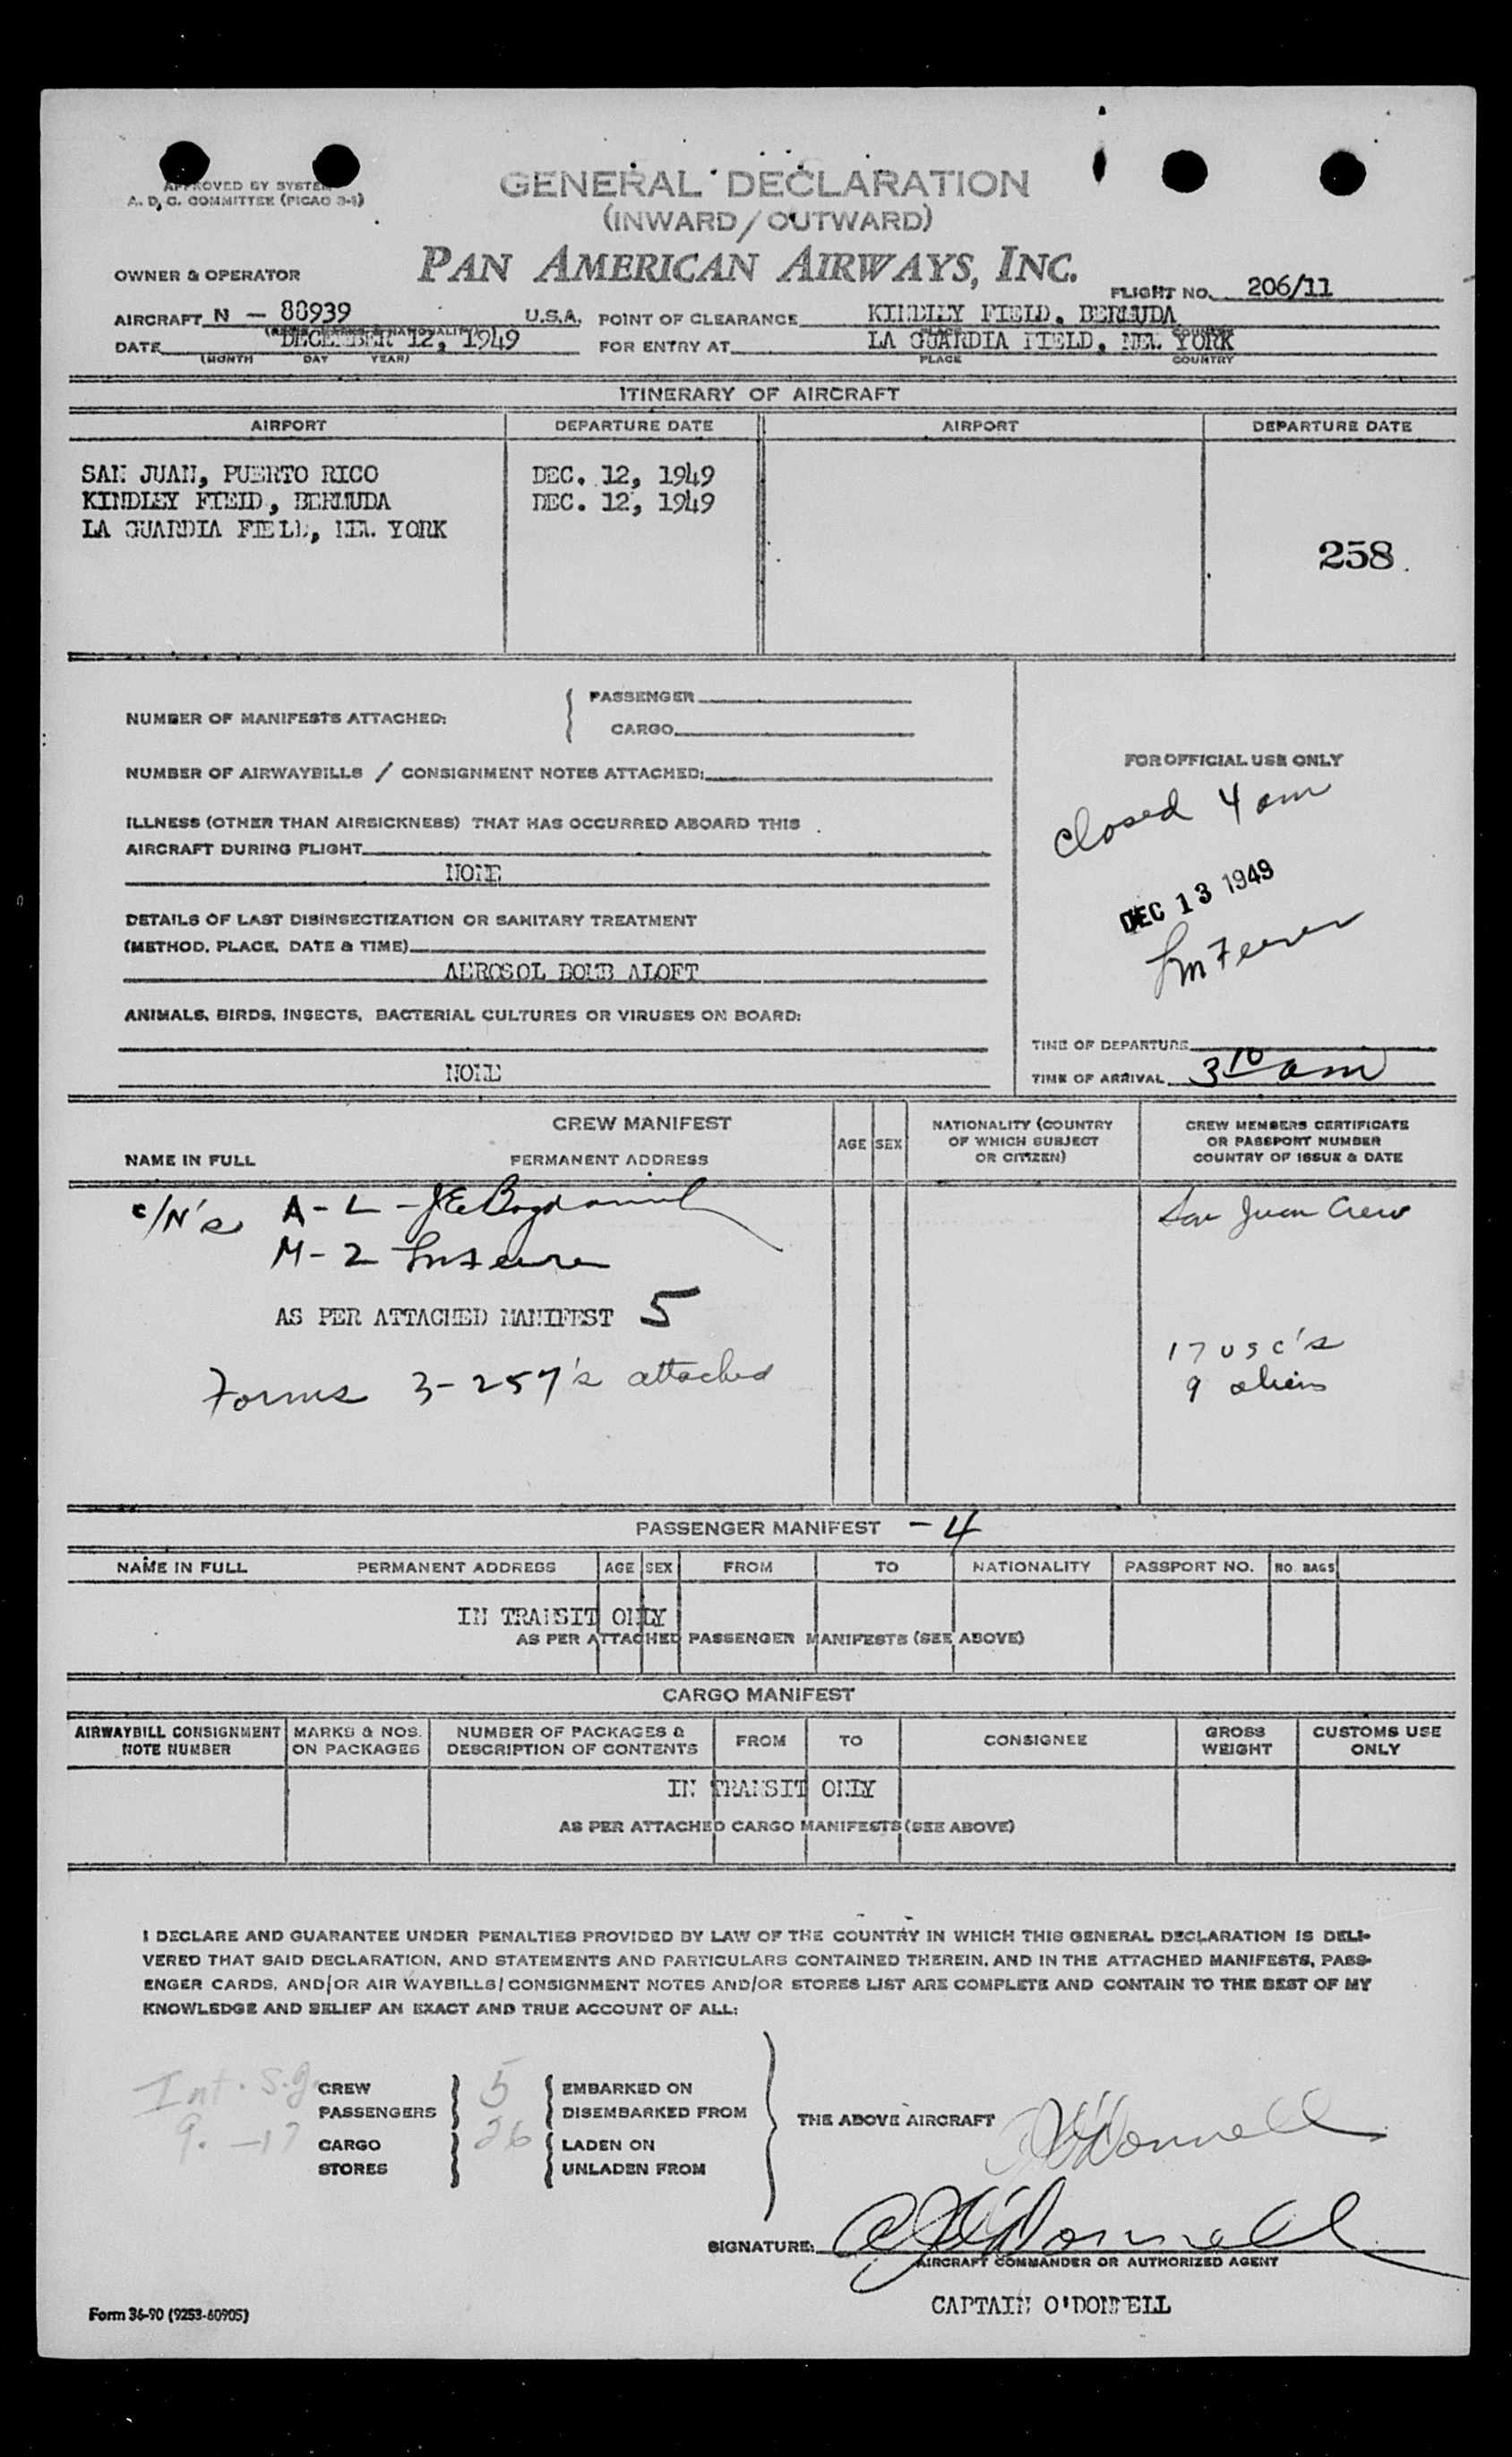 APPROVED BY SYSTEM
A. D. C. COMMITTEE (PICAO 3-1)
GENERAL DECLARATION
(INWARD/OUTWARD)
PAN AMERICAN AIRWAYS, INC.
OWNER & OPERATOR
FLIGHT NO. 206/11
AIRCRAFT N - 88939 U.S.A. POINT OF CLEARANCE KINDLEY FIELD, BERMUDA
DATE DECEMBER 12, 1949 FOR ENTRY AT LA GUARDIA FIELD, NEW YORK
(MONTH DAY YEAR) PLACE COUNTRY
ITINERARY OF AIRCRAFT
AIRPORT DEPARTURE DATE AIRPORT DEPARTURE DATE
SAN JUAN, PUERTO RICO DEC. 12, 1949
KINDLEY FIELD, BERMUDA DEC. 12, 1949
LA GUARDIA FIELD, NEW YORK
258
NUMBER OF MANIFESTS ATTACHED: PASSENGER
CARGO
NUMBER OF AIRWAYBILLS / CONSIGNMENT NOTES ATTACHED:
ILLNESS (OTHER THAN AIRSICKNESS) THAT HAS OCCURRED ABOARD THIS
AIRCRAFT DURING FLIGHT
NONE
DETAILS OF LAST DISINSECTIZATION OR SANITARY TREATMENT
(METHOD, PLACE, DATE & TIME)
AEROSOL BOMB ALOFT
ANIMALS, BIRDS, INSECTS, BACTERIAL CULTURES OR VIRUSES ON BOARD:
NONE
FOR OFFICIAL USE ONLY
closed 4 am
DEC 13 1949
TIME OF DEPARTURE
TIME OF ARRIVAL 3 10 am
CREW MANIFEST
NAME IN FULL PERMANENT ADDRESS
AGE SEX
NATIONALITY (COUNTRY
OF WHICH SUBJECT
OR CITIZEN)
CREW MEMBERS CERTIFICATE
OR PASSPORT NUMBER
COUNTRY OF ISSUE & DATE
c/N's A - L -
San Juan Crew
M - 2
AS PER ATTACHED MANIFEST 5
Forms 3-257's attached
17 USC's
9 aliens
PASSENGER MANIFEST - 4
NAME IN FULL PERMANENT ADDRESS AGE SEX FROM TO NATIONALITY PASSPORT NO. NO. BAGS
IN TRANSIT ONLY
AS PER ATTACHED PASSENGER MANIFESTS (SEE ABOVE)
CARGO MANIFEST
AIRWAYBILL CONSIGNMENT NOTE NUMBER MARKS & NOS. ON PACKAGES NUMBER OF PACKAGES & DESCRIPTION OF CONTENTS FROM TO CONSIGNEE GROSS WEIGHT CUSTOMS USE ONLY
IN TRANSIT ONLY
AS PER ATTACHED CARGO MANIFESTS (SEE ABOVE)
I DECLARE AND GUARANTEE UNDER PENALTIES PROVIDED BY LAW OF THE COUNTRY IN WHICH THIS GENERAL DECLARATION IS DELI-
VERED THAT SAID DECLARATION, AND STATEMENTS AND PARTICULARS CONTAINED THEREIN, AND IN THE ATTACHED MANIFESTS, PASS-
ENGER CARDS, AND/OR AIR WAYBILLS/CONSIGNMENT NOTES AND/OR STORES LIST ARE COMPLETE AND CONTAIN TO THE BEST OF MY
KNOWLEDGE AND BELIEF AN EXACT AND TRUE ACCOUNT OF ALL:
Int. S.J.
9. -17
CREW 5 EMBARKED ON
PASSENGERS DISEMBARKED FROM
CARGO 26 LADEN ON
STORES UNLADEN FROM
THE ABOVE AIRCRAFT O'Donnell
SIGNATURE: O'Donnell
AIRCRAFT COMMANDER OR AUTHORIZED AGENT
CAPTAIN O'DONNELL
Form 36-90 (9253-60905)